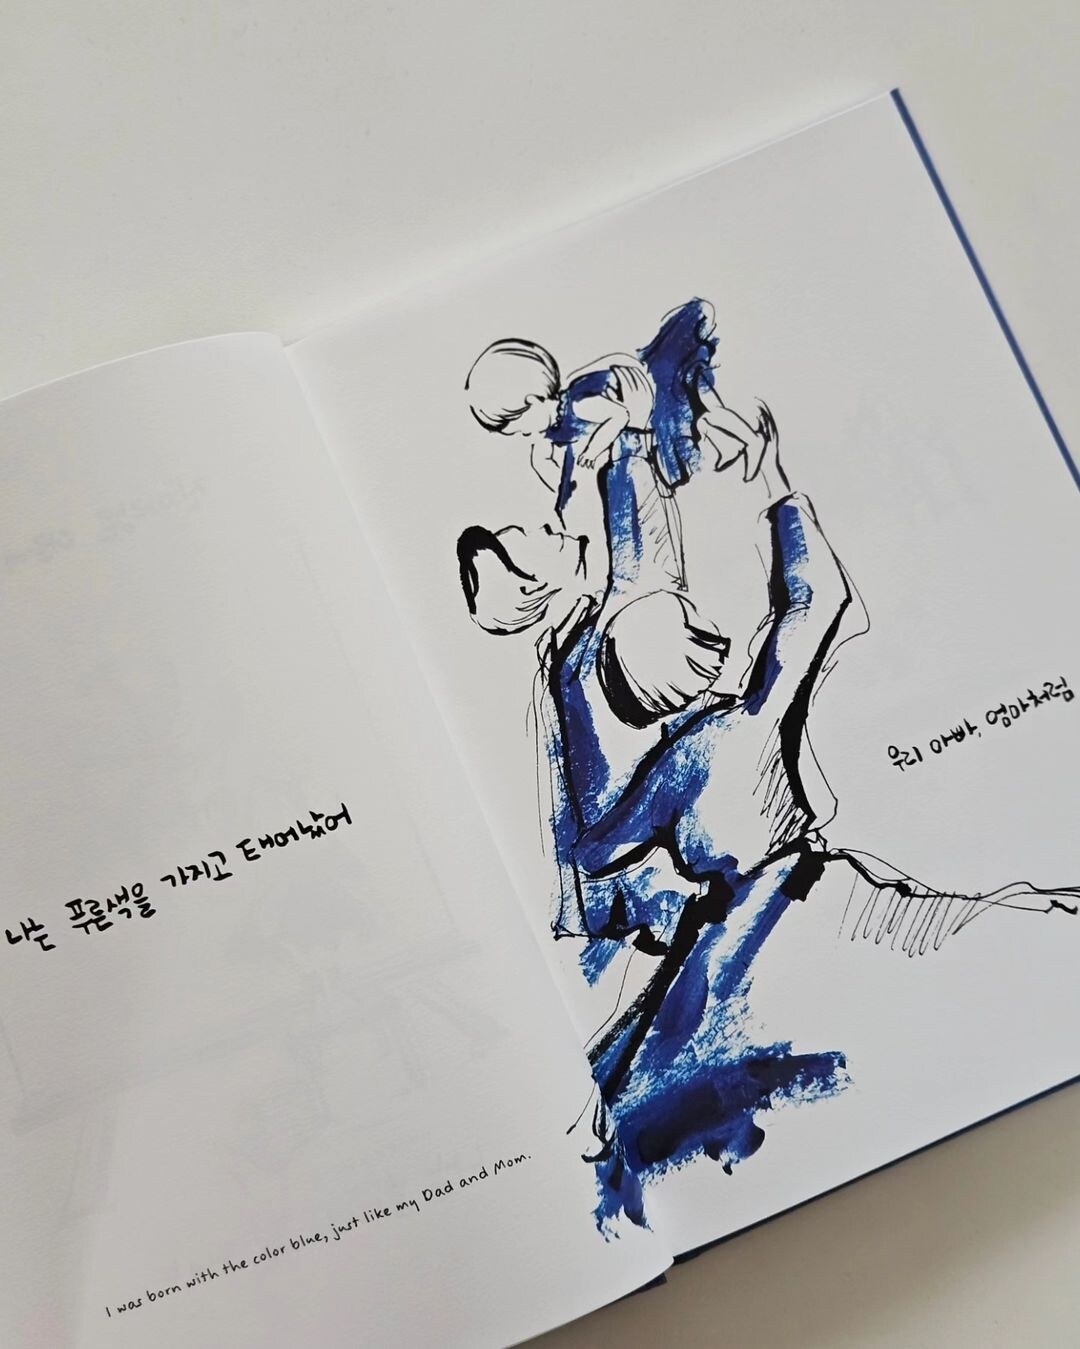 나는 푸른색을 가지고 태어났어
우리 아빠, 엄마처럼
I was born with the color blue, just like my Dad and Mom.